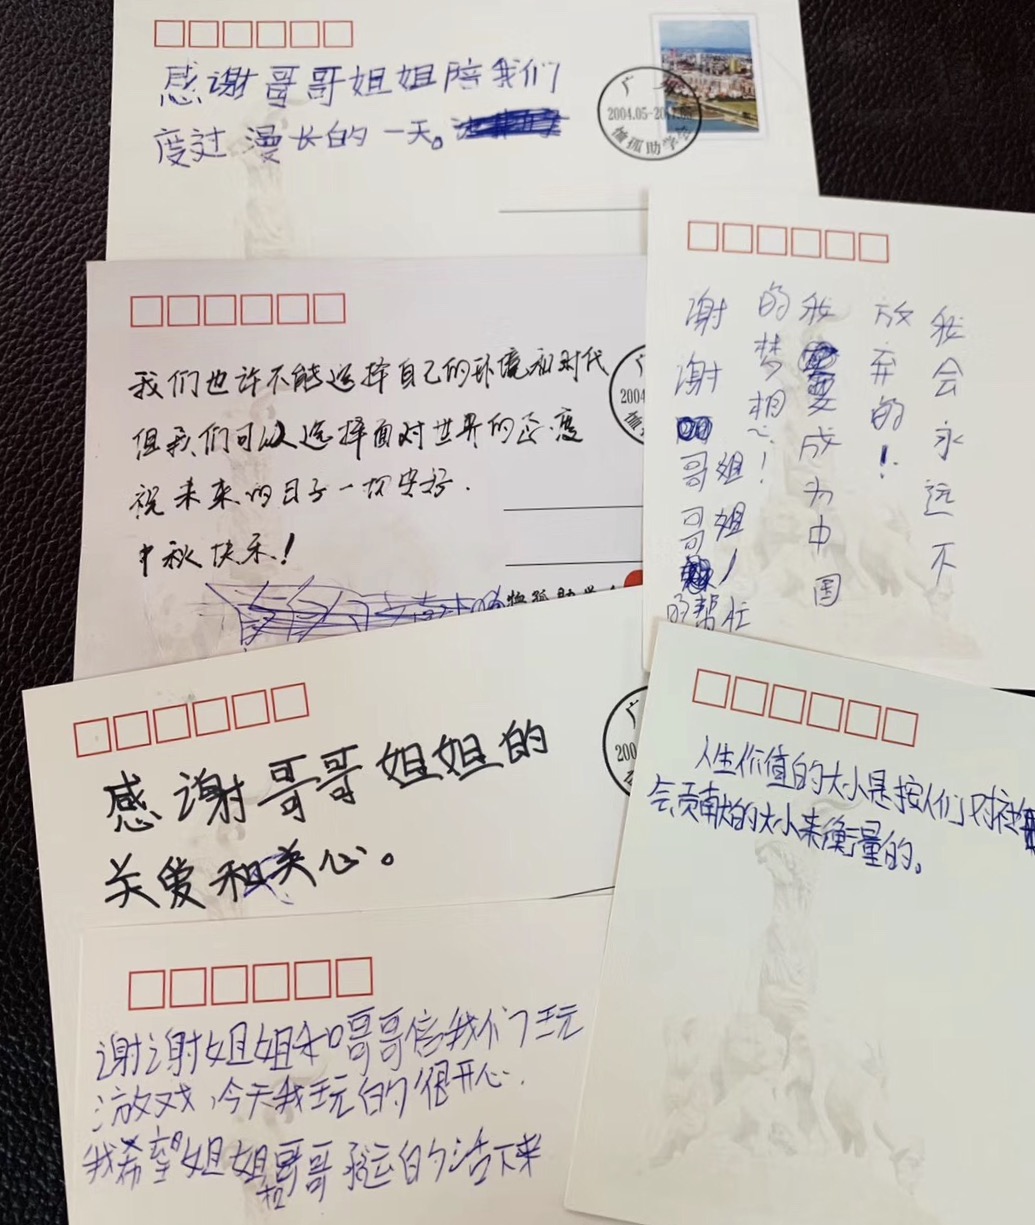 感谢哥哥姐姐陪我们
度过漫长的一天。
2004.05-20
恤孤助学会
我们也许不能选择自己的环境和时代
但我们可以选择面对世界的态度
祝未来的日子一切安好.
中秋快乐!
我会永远不
放弃的!
我要成为中国
的梦想!
谢谢哥哥姐姐
的帮忙!
感谢哥哥姐姐的
关爱和关心。
人生价值的大小是按人们对社
会贡献的大小来衡量的。
谢谢姐姐和哥哥陪我们玩
游戏,今天我玩的很开心.
我希望姐姐和哥哥永远的活下来